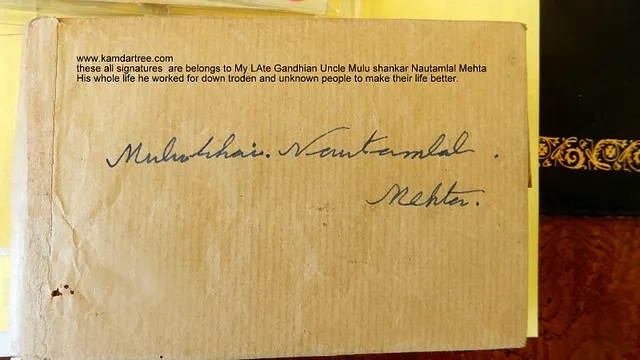 www.kamdartree.com
these all signatures are belongs to My LAte Gandhian Uncle Mulu shankar Nautamlal Mehta
His whole life he worked for down troden and unknown people to make their life better.
Mulubhai. Nautamlal .
Mehta.